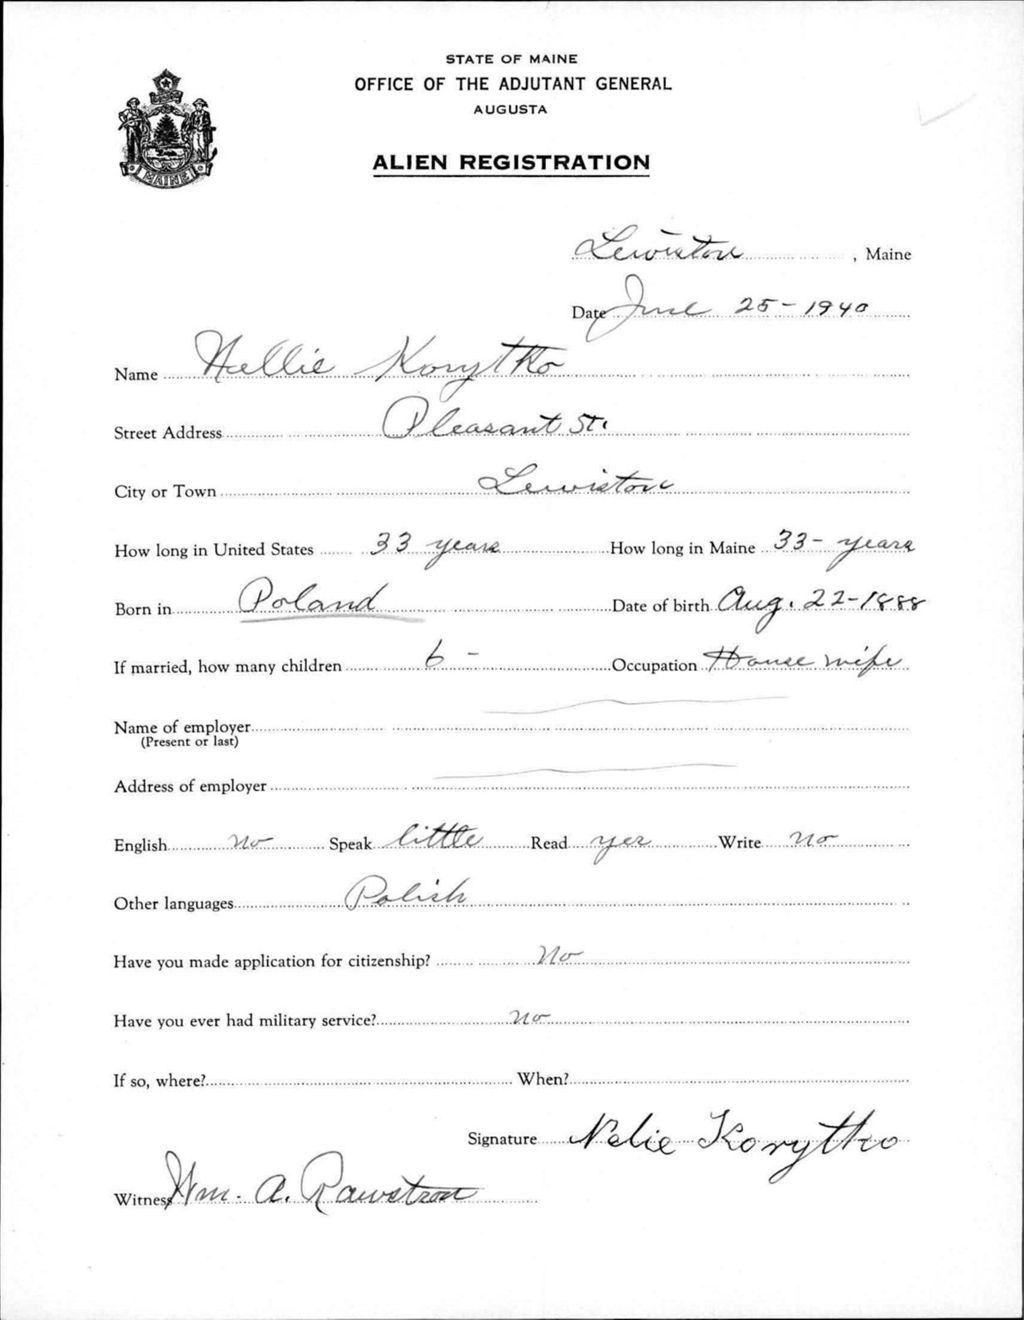 STATE OF MAINE
OFFICE OF THE ADJUTANT GENERAL
AUGUSTA
MAINE
ALIEN REGISTRATION
Lewiston, Maine
Date June 25-1940
Name Nellie Korytko
Street Address Pleasant St.
City or Town Lewiston
How long in United States 33 years How long in Maine 33- years
Born in Poland Date of birth Aug. 22-1888
If married, how many children 6 - Occupation House wife
Name of employer
(Present or last)
Address of employer
English no Speak little Read yes Write no
Other languages Polish
Have you made application for citizenship? No
Have you ever had military service? no
If so, where? When?
Signature Nelie Korytko
Witness Wm. A. Rawstron